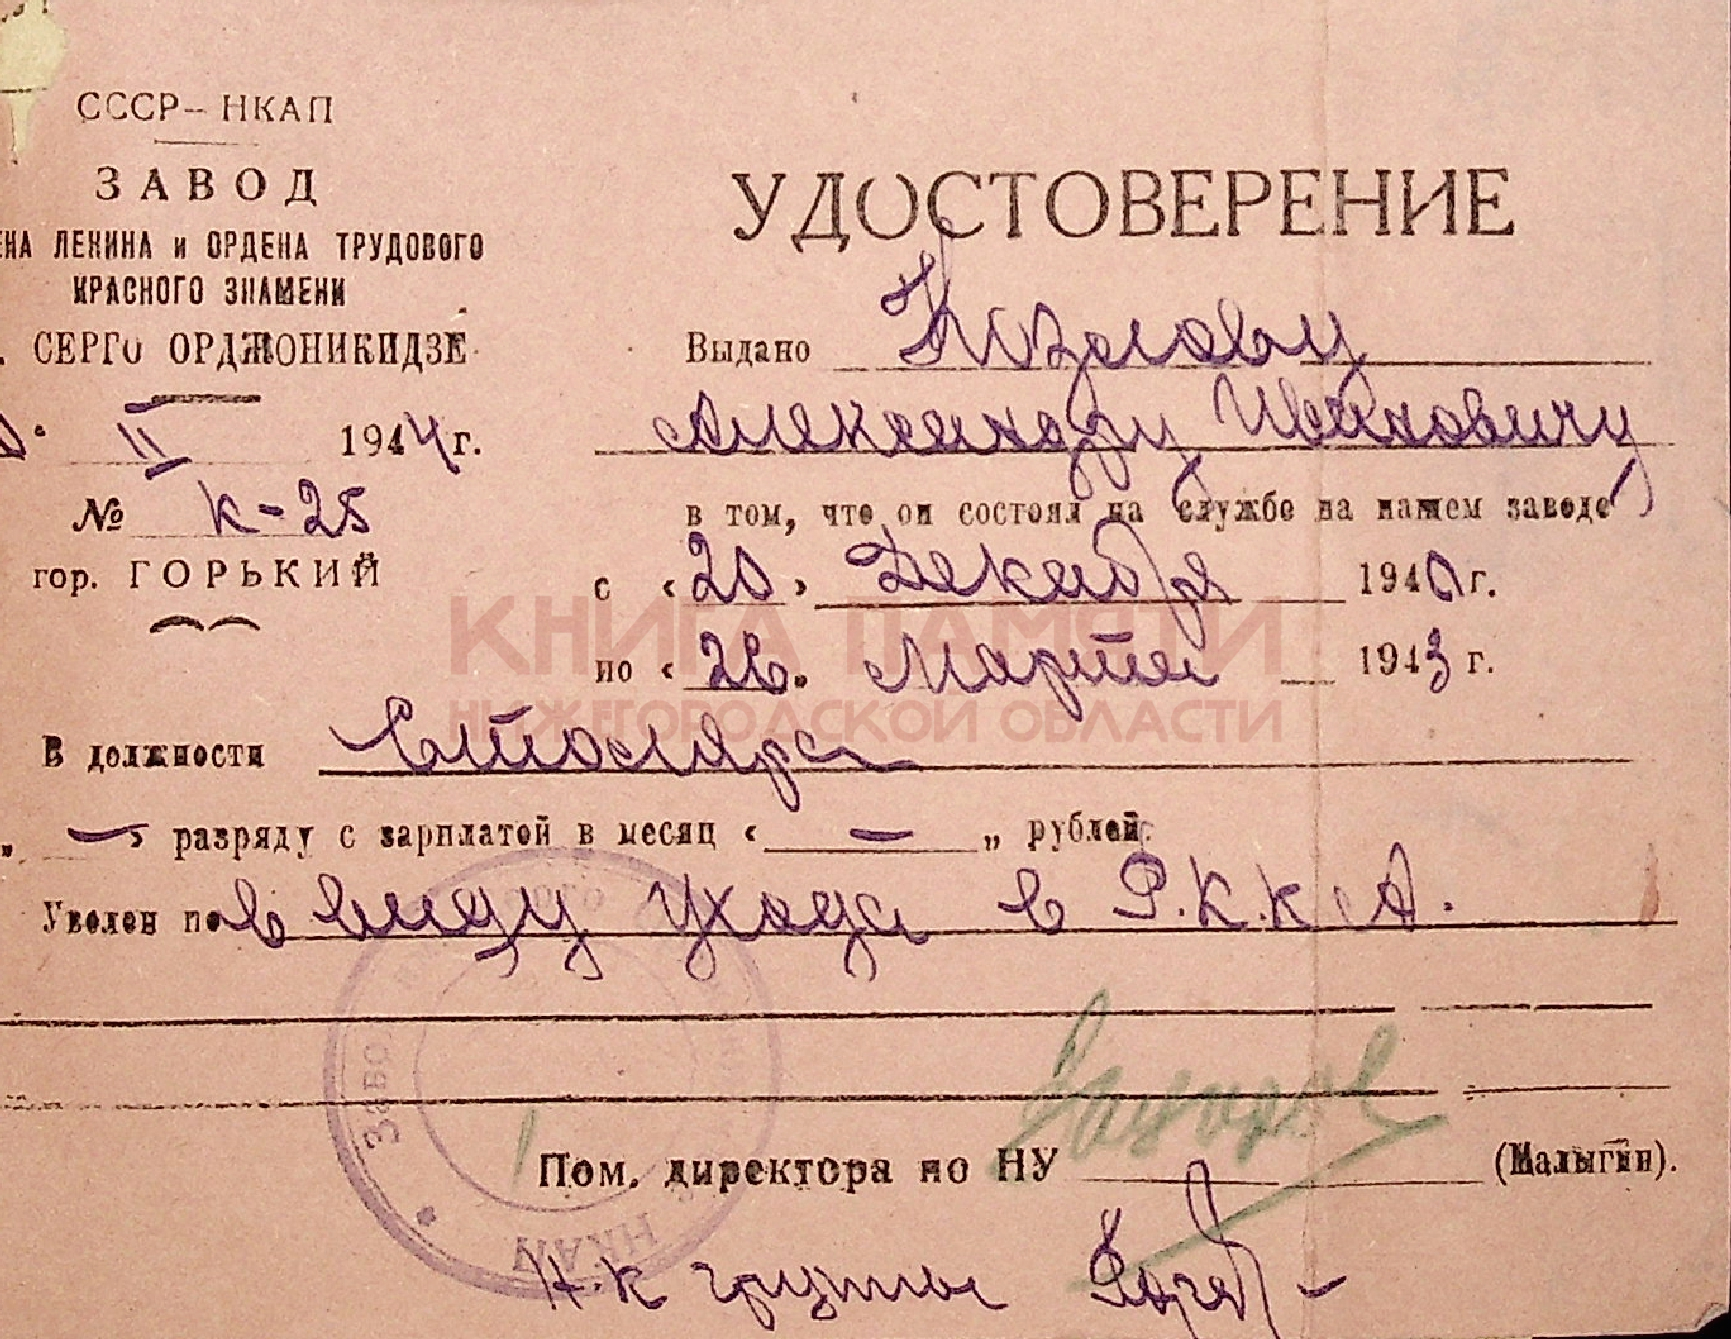 СССР — НКАП
ЗАВОД
ЕНА ЛЕНИНА и ОРДЕНА ТРУДОВОГО
КРАСНОГО ЗНАМЕНИ
. СЕРГО ОРДЖОНИКИДЗЕ
II 1944 г.
№ К-25
гор. ГОРЬКИЙ
УДОСТОВЕРЕНИЕ
Выдано Козлову
Александру Ивановичу
в том, что он состоял на службе на нашем заводе
с «20» Декабря 1940 г.
по «26» Марта 1943 г.
КНИГА ПАМЯТИ
НИЖЕГОРОДСКОЙ ОБЛАСТИ
В должности Столяра
„ — » разряду с зарплатой в месяц « — „ рублей.
Уволен по в виду ухода в Р.К.К.А.
Завод
НКАП
Пом. директора по НУ (Малыгин).
Н.К группы